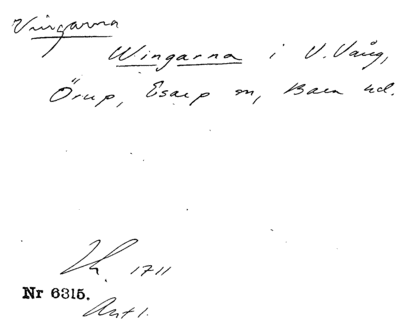 Vingarna
Wingarna i V. Vång,
Örup, Esarp sn, Bara hd.
1711
Nr 6315.
Ant 1.